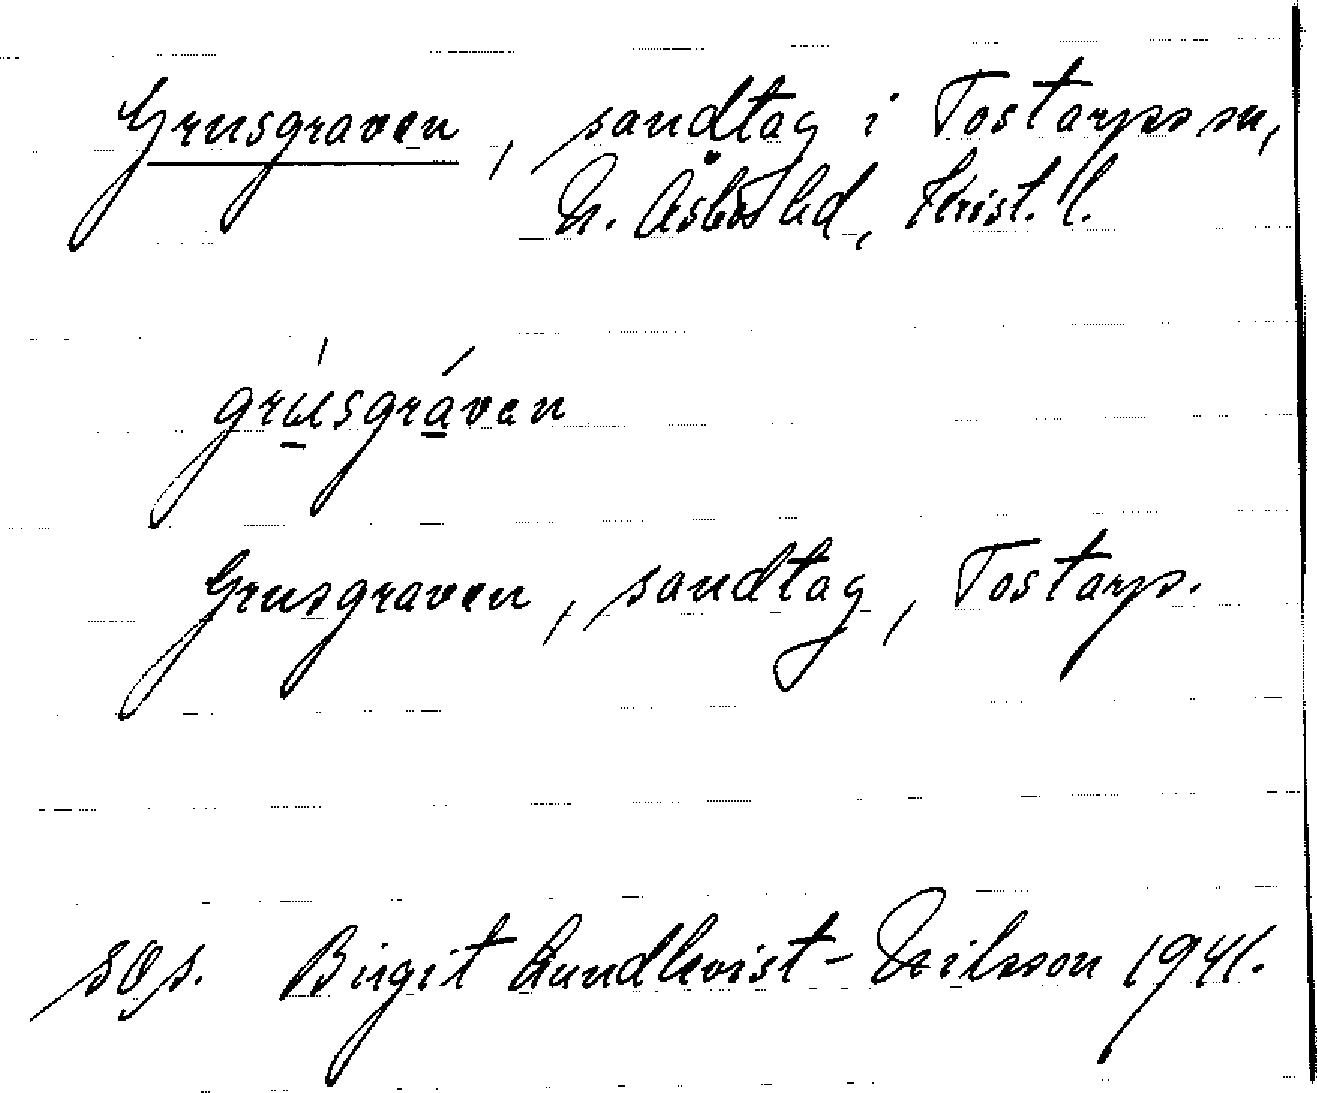 Grusgraven, sandtag i Tostarps sn,
N. Åsbo hd, Krist. l.
grúsgráven
Grusgraven, sandtag, Tostarp.
sOs. Birgit Lundkvist-Nilsson 1941.